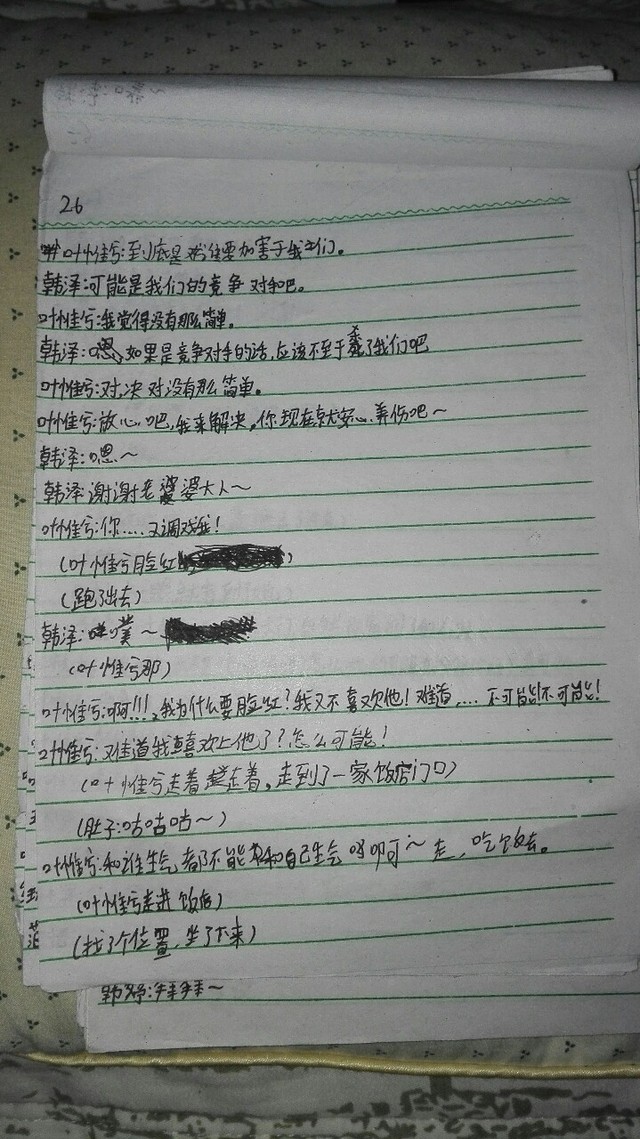 26
叶惟兮:到底是谁要加害于我们。
韩泽:可能是我们的竞争对手吧。
叶惟兮:我觉得没有那么简单。
韩泽:嗯,如果是竞争对手的话,应该不至于杀了我们吧
叶惟兮:对,决对没有那么简单。
叶惟兮:放心吧,我来解决,你现在就安心养伤吧~
韩泽:嗯~
韩泽:谢谢老婆婆大人~
叶惟兮:你....又调戏我!
(叶惟兮脸红)
(跑出去)
韩泽:噗~
(叶惟兮那)
叶惟兮:啊!!!,我为什么要脸红?我又不喜欢他!难道,....不可能!不可能!
叶惟兮:难道我喜欢上他了?怎么可能!
(叶惟兮走着走着,走到了一家饭店门口)
(肚子:咕咕咕~)
叶惟兮:和谁生气都不能和自己生气啊~走,吃饭去。
(叶惟兮走进饭店)
(找了个位置,坐了下来)